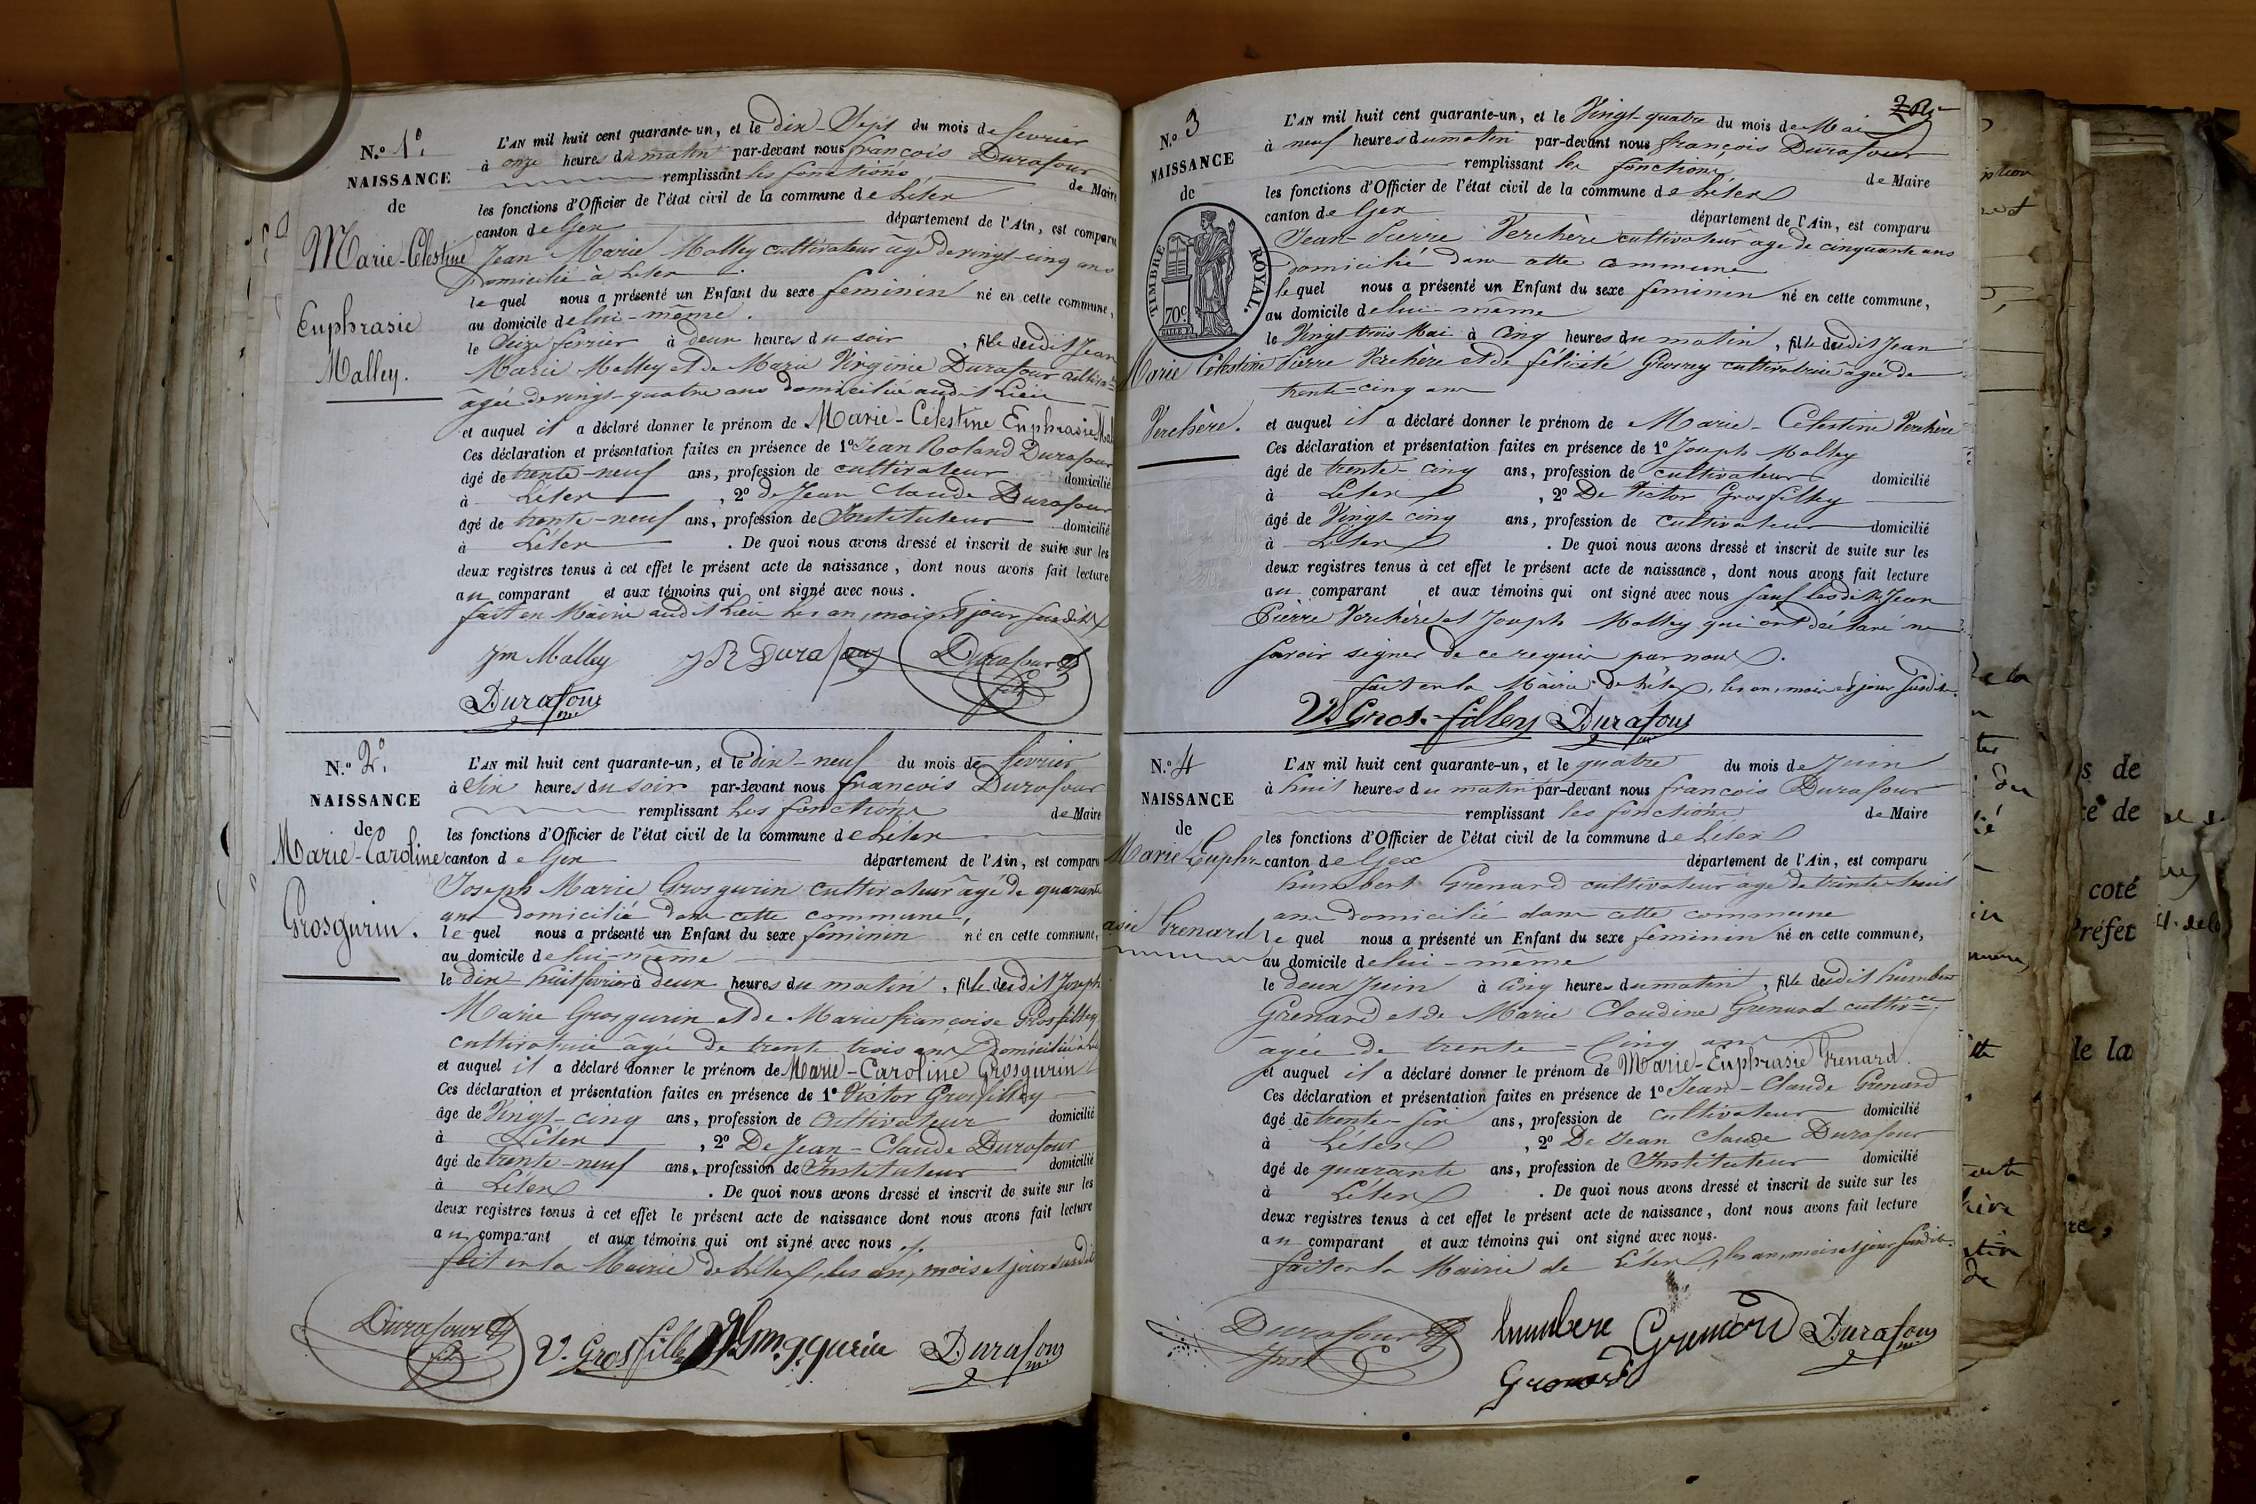 N.o 1.o
NAISSANCE
de
Marie-Célestine
Euphrasie
Malley.
L'AN mil huit cent quarante-un, et le dix-Sept du mois de février
à onze heures du matin par-devant nous françois Durafour
remplissant les fonctions de Maire
les fonctions d'Officier de l'état civil de la commune de Lélex
canton de Gex département de l'Ain, est comparu
Jean Marie Malley cultivateur âgé de vingt-cinq ans
domicilié à Lélex
le quel nous a présenté un Enfant du sexe féminin né en cette commune,
au domicile de lui-même.
le Seize février à deux heures du soir, fille dudit Jean
Marie Malley et de Marie Virginie Durafour cultiva
âgée de vingt-quatre ans domiciliée audit Lieu
et auquel il a déclaré donner le prénom de Marie-Célestine Euphrasie Mal
Ces déclaration et présentation faites en présence de 1o Jean Roland Durafour
âgé de trente-neuf ans, profession de cultivateur domicilié
à Lélex, 2o de Jean Claude Durafour
âgé de trente-neuf ans, profession de Instituteur domicilié
à Lélex. De quoi nous avons dressé et inscrit de suite sur les
deux registres tenus à cet effet le présent acte de naissance, dont nous avons fait lecture
au comparant et aux témoins qui ont signé avec nous.
fait en Mairie audit Lieu les an, mois et jour susdits
Jm Malley JR Durafour Durafour
Durafour
N.o 2.o
NAISSANCE
de
Marie-Caroline
Grosgurin.
L'AN mil huit cent quarante-un, et le dix-neuf du mois de février
à Six heures du soir par-devant nous françois Durafour
remplissant les fonctions de Maire
les fonctions d'Officier de l'état civil de la commune de Lélex
canton de Gex département de l'Ain, est comparu
Joseph Marie Grosgurin cultivateur âgé de quarante
ans domicilié dans cette commune,
le quel nous a présenté un Enfant du sexe féminin né en cette commune,
au domicile de lui-même
le dix-huit février à deux heures du matin, fille dudit Joseph
Marie Grosgurin et de Marie françoise Grosfilley
cultivatrice âgée de trente trois ans Domiciliée à
et auquel il a déclaré donner le prénom de Marie-Caroline Grosgurin
Ces déclaration et présentation faites en présence de 1o Victor Grosfilley
âgé de Vingt-cinq ans, profession de Cultivateur domicilié
à Lélex, 2o De Jean-Claude Durafour
âgé de trente-neuf ans, profession de Instituteur domicilié
à Lélex. De quoi nous avons dressé et inscrit de suite sur les
deux registres tenus à cet effet le présent acte de naissance dont nous avons fait lecture
au comparant et aux témoins qui ont signé avec nous
fait en la Mairie de Lélex, les an, mois et jour susdit
Durafour V. Grosfilley Grosgurin Durafour
N.o 3
NAISSANCE
de
TIMBRE ROYAL.
70c
Marie Célestine
Verchère.
L'AN mil huit cent quarante-un, et le Vingt-quatre du mois de Mai
à neuf heures du matin par-devant nous françois Durafour
remplissant les fonctions de Maire
les fonctions d'Officier de l'état civil de la commune de Lélex
canton de Gex département de l'Ain, est comparu
Jean-Pierre Verchère cultivateur âgé de cinquante ans
domicilié dans cette commune
le quel nous a présenté un Enfant du sexe féminin né en cette commune,
au domicile de lui-même
le Vingt-trois Mai à Cinq heures du matin, fille dudit Jean
Pierre Verchère et de félicité cultivatrice âgée de
trente-cinq ans
et auquel il a déclaré donner le prénom de Marie-Célestine Verchère
Ces déclaration et présentation faites en présence de 1o Joseph Malley
âgé de trente-cinq ans, profession de cultivateur domicilié
à Lélex, 2o De Victor Grosfilley
âgé de Vingt-cinq ans, profession de cultivateur domicilié
à Lélex. De quoi nous avons dressé et inscrit de suite sur les
deux registres tenus à cet effet le présent acte de naissance, dont nous avons fait lecture
au comparant et aux témoins qui ont signé avec nous sauf lesdits Jean
Pierre Verchère et Joseph Malley qui ont déclaré ne
savoir signer de ce requis par nous.
fait en la Mairie de Lélex, les an, mois et jour susdits.
V Gros-filley Durafour
N.o 4
NAISSANCE
de
Marie Euphr-
asie Grenard
L'AN mil huit cent quarante-un, et le quatre du mois de Juin
à huit heures du matin par-devant nous françois Durafour
remplissant les fonctions de Maire
les fonctions d'Officier de l'état civil de la commune de Lélex
canton de Gex département de l'Ain, est comparu
humbert Grenard cultivateur âgé de trente-huit
ans domicilié dans cette commune
le quel nous a présenté un Enfant du sexe féminin né en cette commune,
au domicile de lui-même
le deux Juin à Cinq heures du matin, fille dudit humber
Grenard et de Marie Claudine Grenard cultiv.ce
âgée de trente-Cinq ans
et auquel il a déclaré donner le prénom de Marie-Euphrasie Grenard.
Ces déclaration et présentation faites en présence de 1o Jean-Claude Grenard
âgé de trente-six ans, profession de cultivateur domicilié
à Lélex, 2o De Jean Claude Durafour
âgé de quarante ans, profession de Instituteur domicilié
à Lélex. De quoi nous avons dressé et inscrit de suite sur les
deux registres tenus à cet effet le présent acte de naissance, dont nous avons fait lecture
au comparant et aux témoins qui ont signé avec nous.
fait en la Mairie de Lélex, les an, mois et jour susdits.
Durafour humbere Grenard Durafour
Grenard
s de
ce de
coté
Préfet
de la